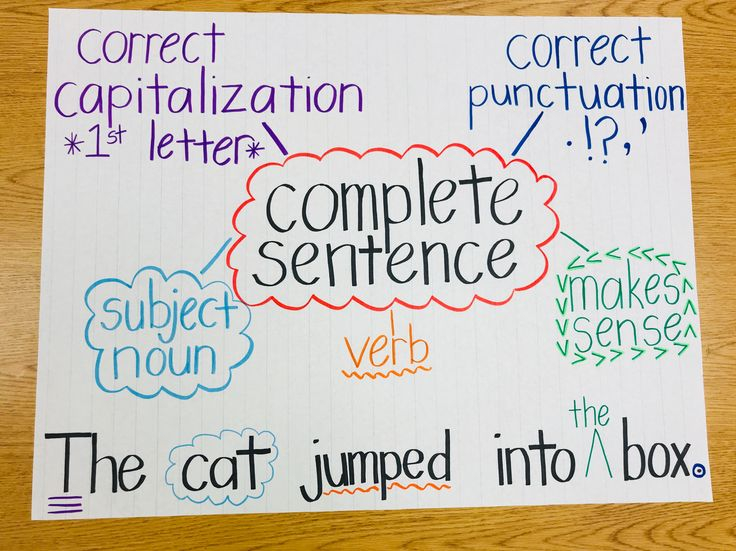 correct
capitalization
*1st letter*
correct
punctuation
. ! ? , '
complete
sentence
subject
noun
verb
makes
sense
The cat jumped into the box.